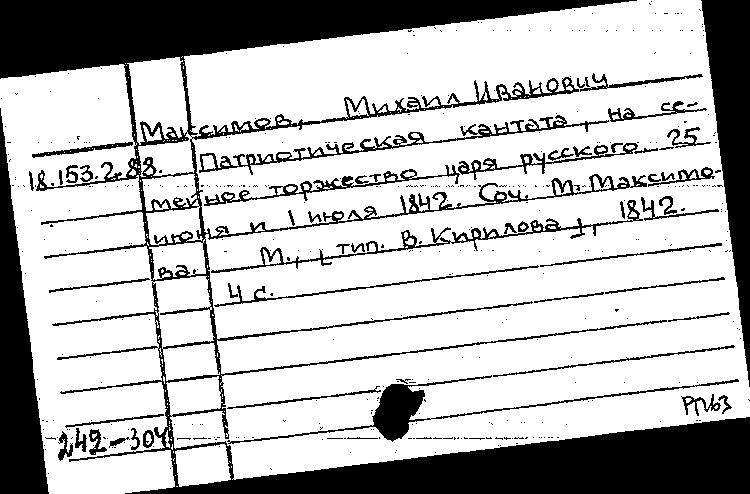 Максимов, Михаил Иванович
18.153.2.88. Патриотическая кантата, на се-
мейное торжество царя русского 25
июня и 1 июля 1842. Соч. М. Максимо-
ва. М., [тип. В. Кирилова], 1842.
4 с.
242-304